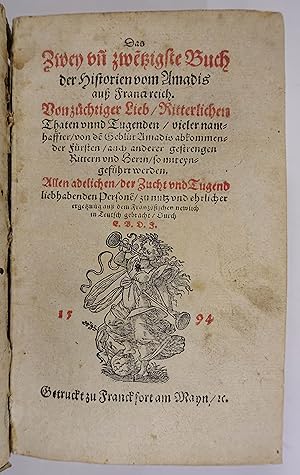 Das
Zwey vñ zwëtzigste Buch
der Historien vom Amadis
auß Franckreich.
Von züchtiger Lieb / Ritterlichen
Thaten vnnd Tugenden / vieler nam-
haffter / von dë Geblüt Amadis abkommen-
der Fürsten / auch anderer gestrengen
Rittern vnd Herrn / so miteyn-
geführt werden.
Allen adelichen / der Zucht vnd Tugend
liebhabenden Personë / zu nutz vnd ehrlicher
ergetzung auß dem Frantzösischen newlich
in Teutsch gebracht / Durch
15 94
Getruckt zu Franckfort am Mayn / ꝛc.